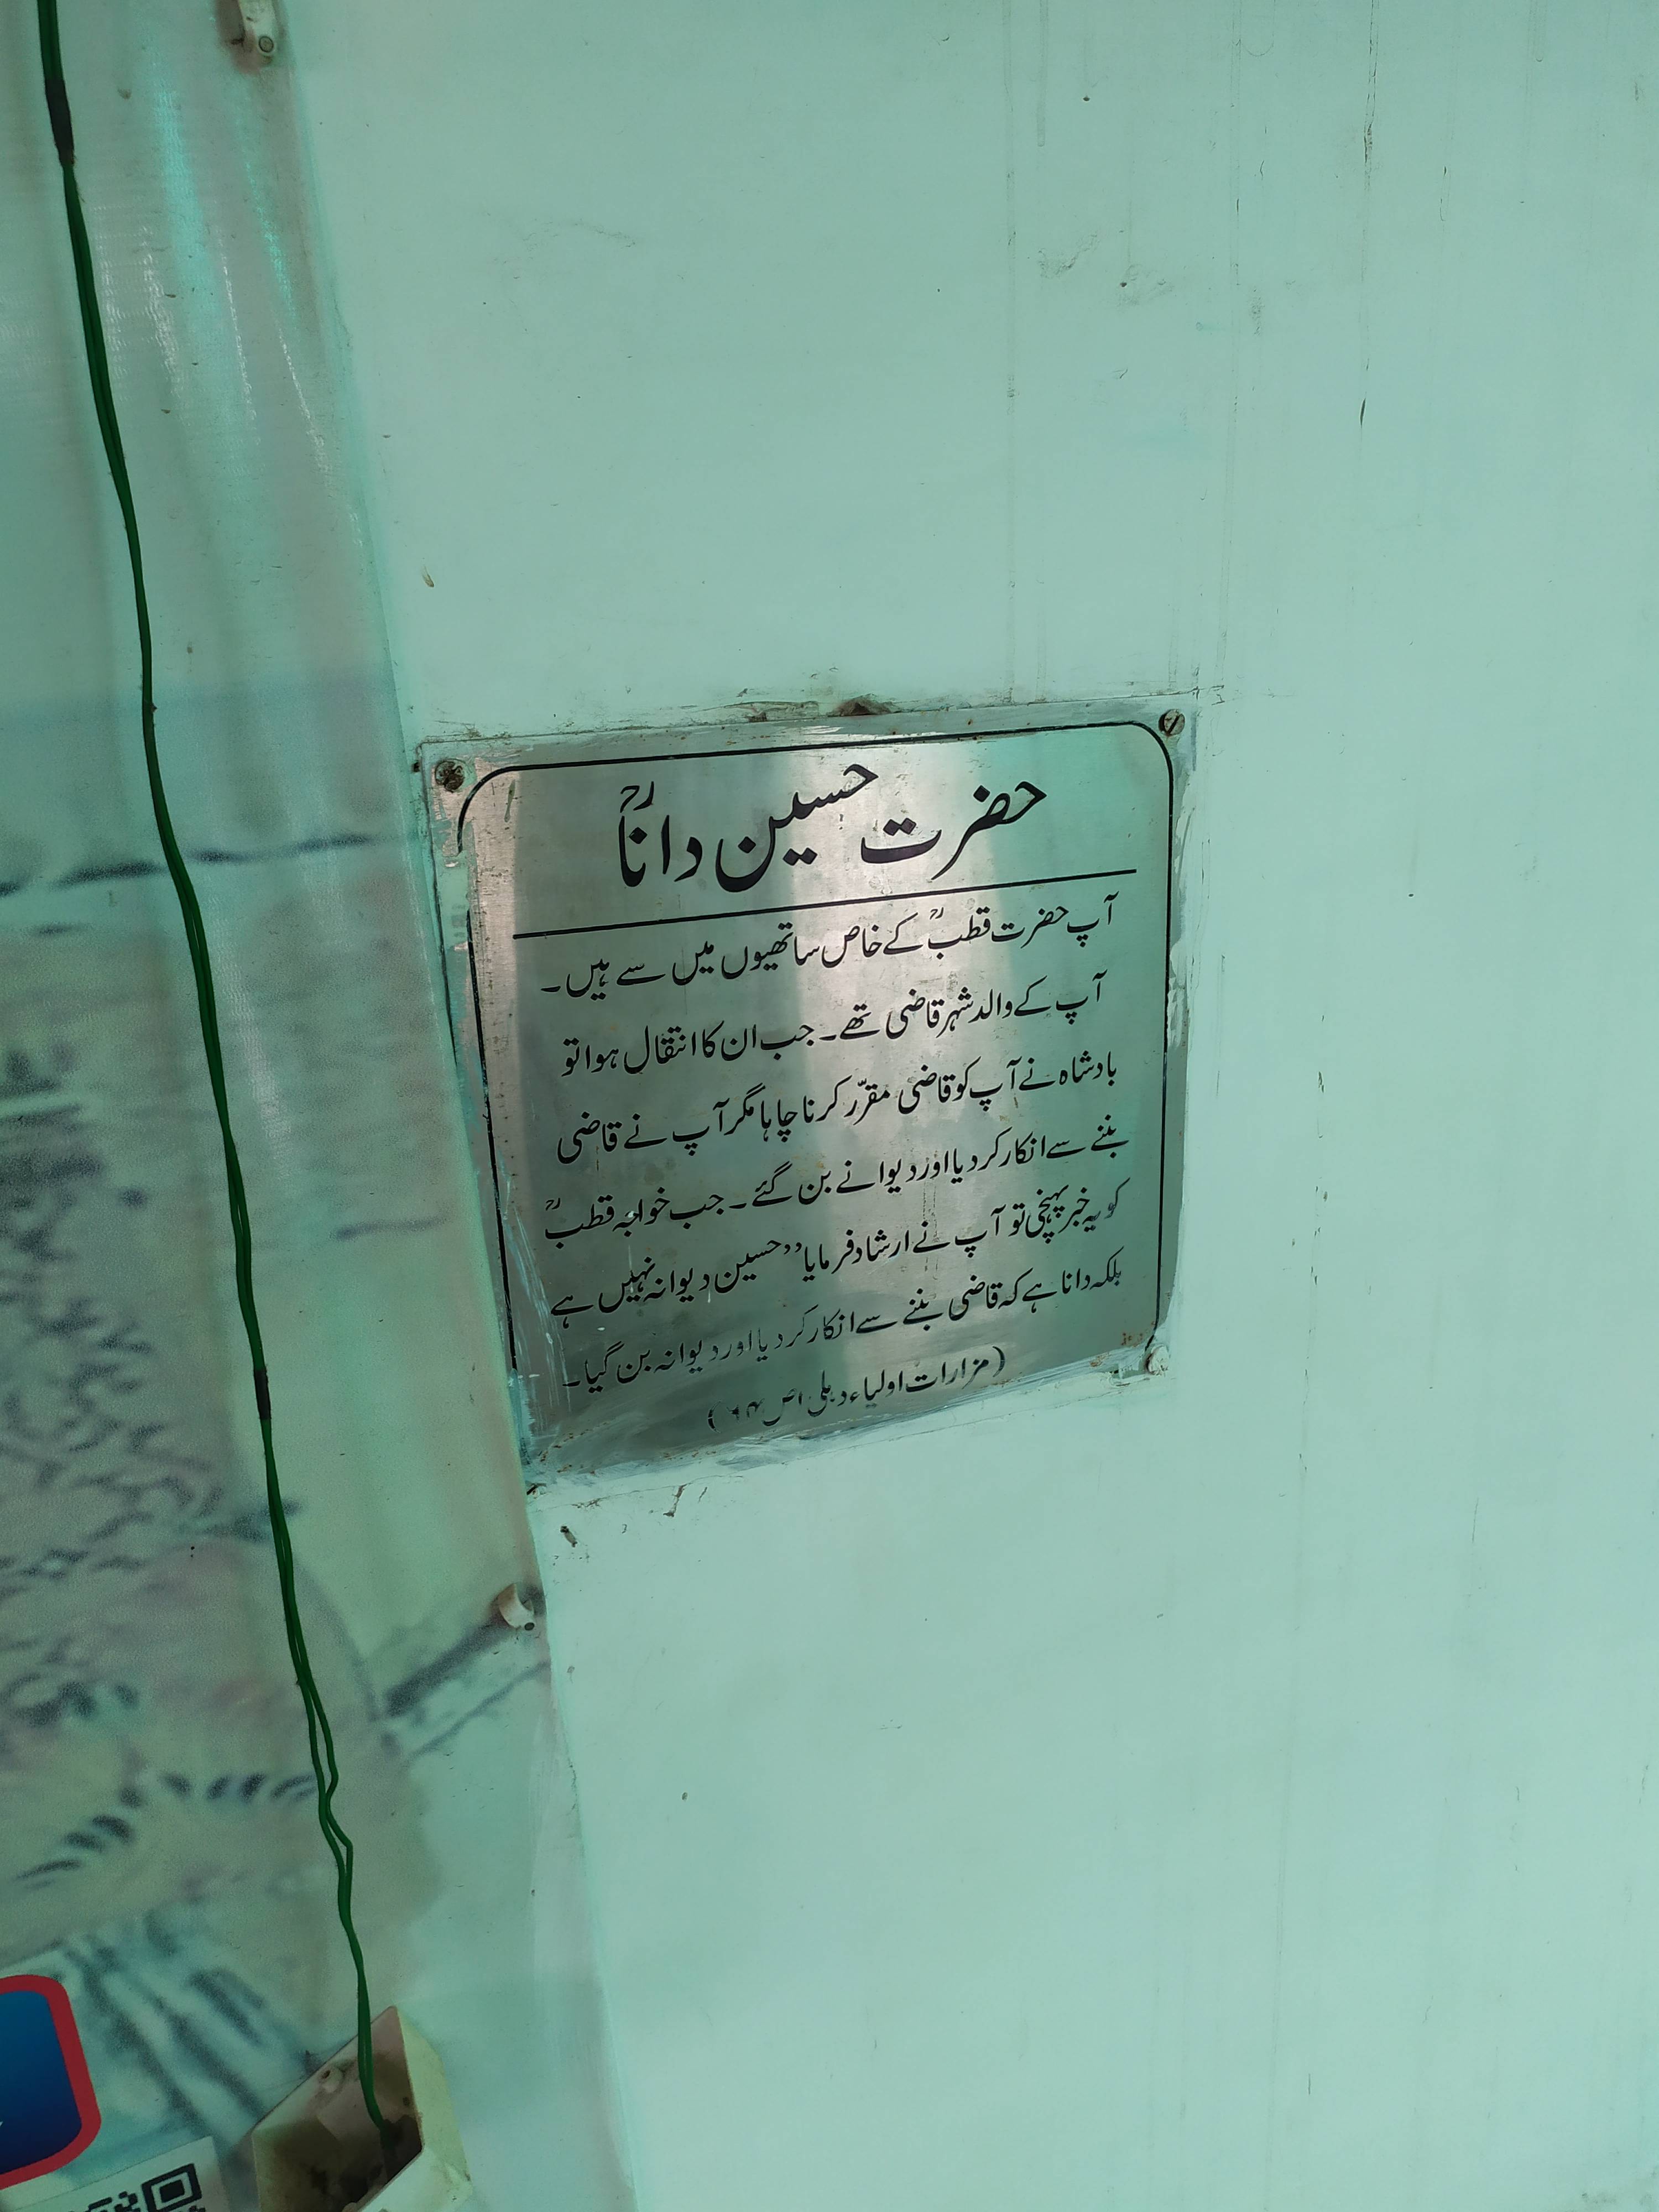 حضرت حسین داناؒ
آپ حضرت قطبؒ کے خاص ساتھیوں میں سے ہیں۔
آپ کے والد شہر قاضی تھے۔ جب ان کا انتقال ہوا تو
بادشاہ نے آپ کو قاضی مقرّر کرنا چاہا مگر آپ نے قاضی
بننے سے انکار کر دیا اور دیوانے بن گئے۔ جب خواجہ قطبؒ
کو یہ خبر پہنچی تو آپ نے ارشاد فرمایا ”حسین دیوانہ نہیں ہے
بلکہ دانا ہے کہ قاضی بننے سے انکار کر دیا اور دیوانہ بن گیا۔
(مزارات اولیاء دہلی ص ۶۴)